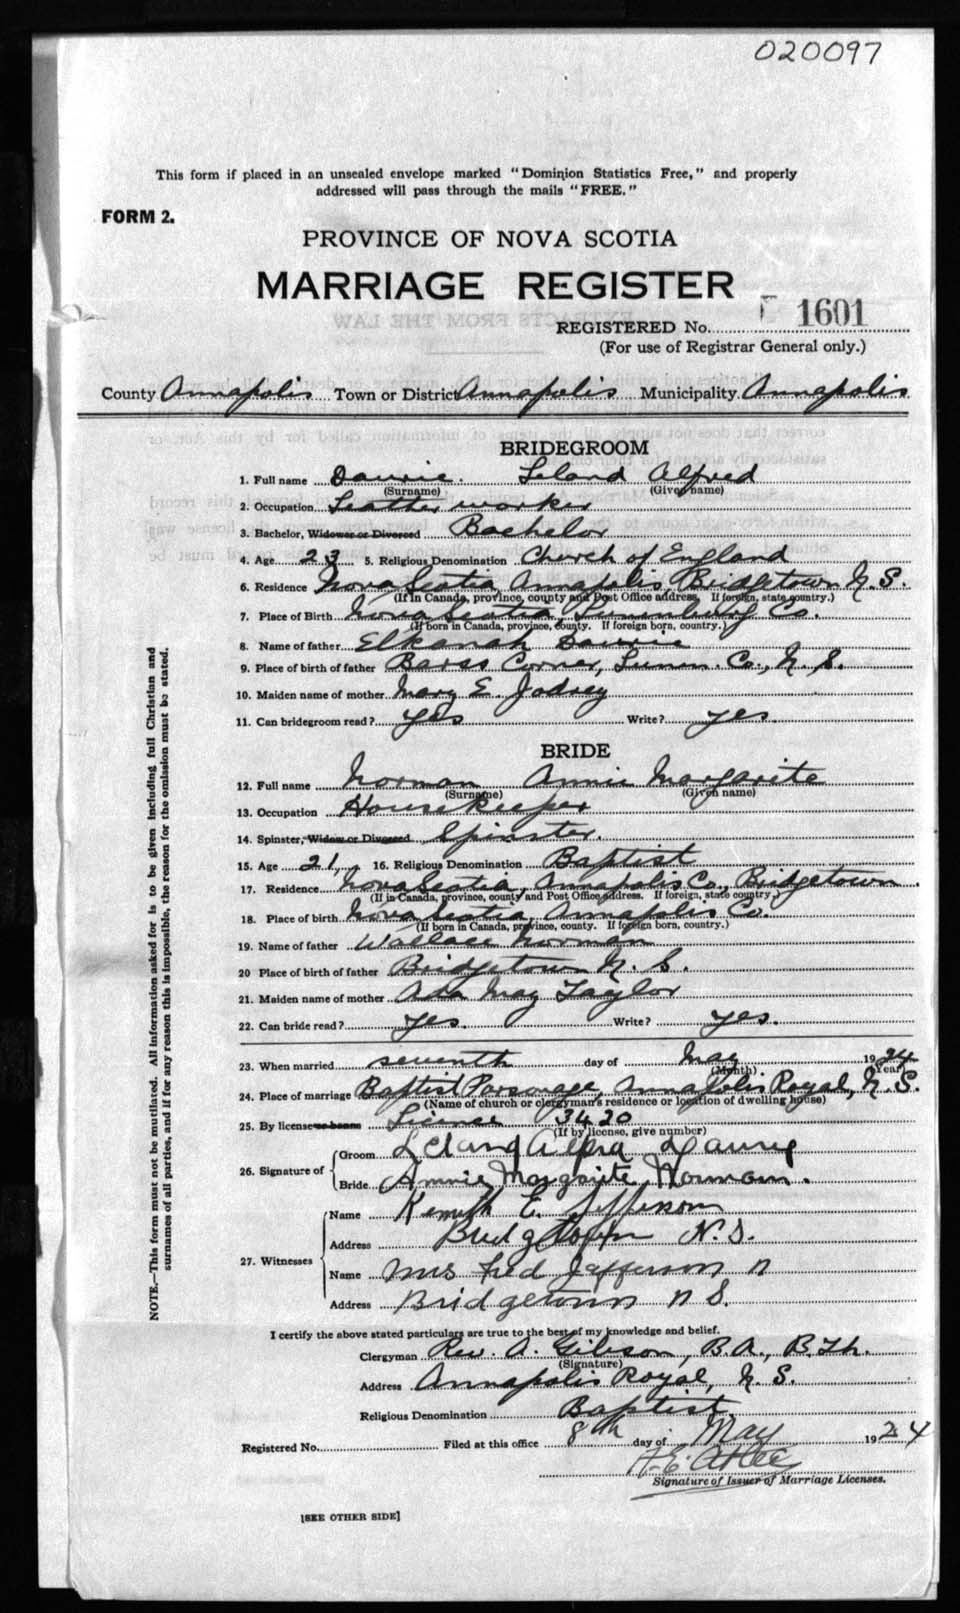 020097
This form if placed in an unsealed envelope marked "Dominion Statistics Free," and properly
addressed will pass through the mails "FREE."
FORM 2.
PROVINCE OF NOVA SCOTIA
MARRIAGE REGISTER
REGISTERED No. 1601
(For use of Registrar General only.)
County Annapolis Town or District Annapolis Municipality Annapolis
BRIDEGROOM
1. Full name Daurie Leland Alfred
(Surname) (Given name)
2. Occupation Leather worker
3. Bachelor, Widower or Divorced Bachelor
4. Age 23 5. Religious Denomination Church of England
6. Residence Nova Scotia, Annapolis, Bridgetown N.S.
(If in Canada, province, county and Post Office address. If foreign, state country.)
7. Place of Birth Nova Scotia, Lunenburg Co.
(If born in Canada, province, county. If foreign born, country.)
8. Name of father Elkanah Daurie
9. Place of birth of father Barss Corner, Lunen. Co., N.S.
10. Maiden name of mother Mary E. Jodrey
11. Can bridegroom read? yes Write? yes
BRIDE
12. Full name Norman Annie Margarite
(Surname) (Given name)
13. Occupation Housekeeper
14. Spinster, Widow or Divorced Spinster.
15. Age 21, 16. Religious Denomination Baptist
17. Residence Nova Scotia, Annapolis Co., Bridgetown.
(If in Canada, province, county and Post Office address. If foreign, state country.)
18. Place of birth Nova Scotia, Annapolis Co.
(If born in Canada, province, county. If foreign born, country.)
19. Name of father Wallace Norman
20 Place of birth of father Bridgetown N.S.
21. Maiden name of mother Ada May Taylor
22. Can bride read? yes. Write? yes.
23. When married seventh day of May 1924
(Month) (Year)
24. Place of marriage Baptist Parsonage, Annapolis Royal, N.S.
(Name of church or clergyman's residence or location of dwelling house)
25. By license or banns License 3420
(If by license, give number)
26. Signature of Groom Leland Alfred Daurie
Bride Annie Margarite Norman.
27. Witnesses Name Kenneth E. Jefferson
Address Bridgetown N.S.
Name Mrs Fred Jefferson
Address Bridgetown N S.
I certify the above stated particulars are true to the best of my knowledge and belief.
Clergyman Rev. A. Gibson, B.A., B.Th.
(Signature)
Address Annapolis Royal, N.S.
Religious Denomination Baptist.
Registered No. Filed at this office 8th day of May 1924
Signature of Issuer of Marriage Licenses.
[SEE OTHER SIDE]
NOTE.—This form must not be mutilated. All information asked for is to be given including full Christian and
surnames of all parties, and if for any reason this is impossible, the reason for the omission must be stated.